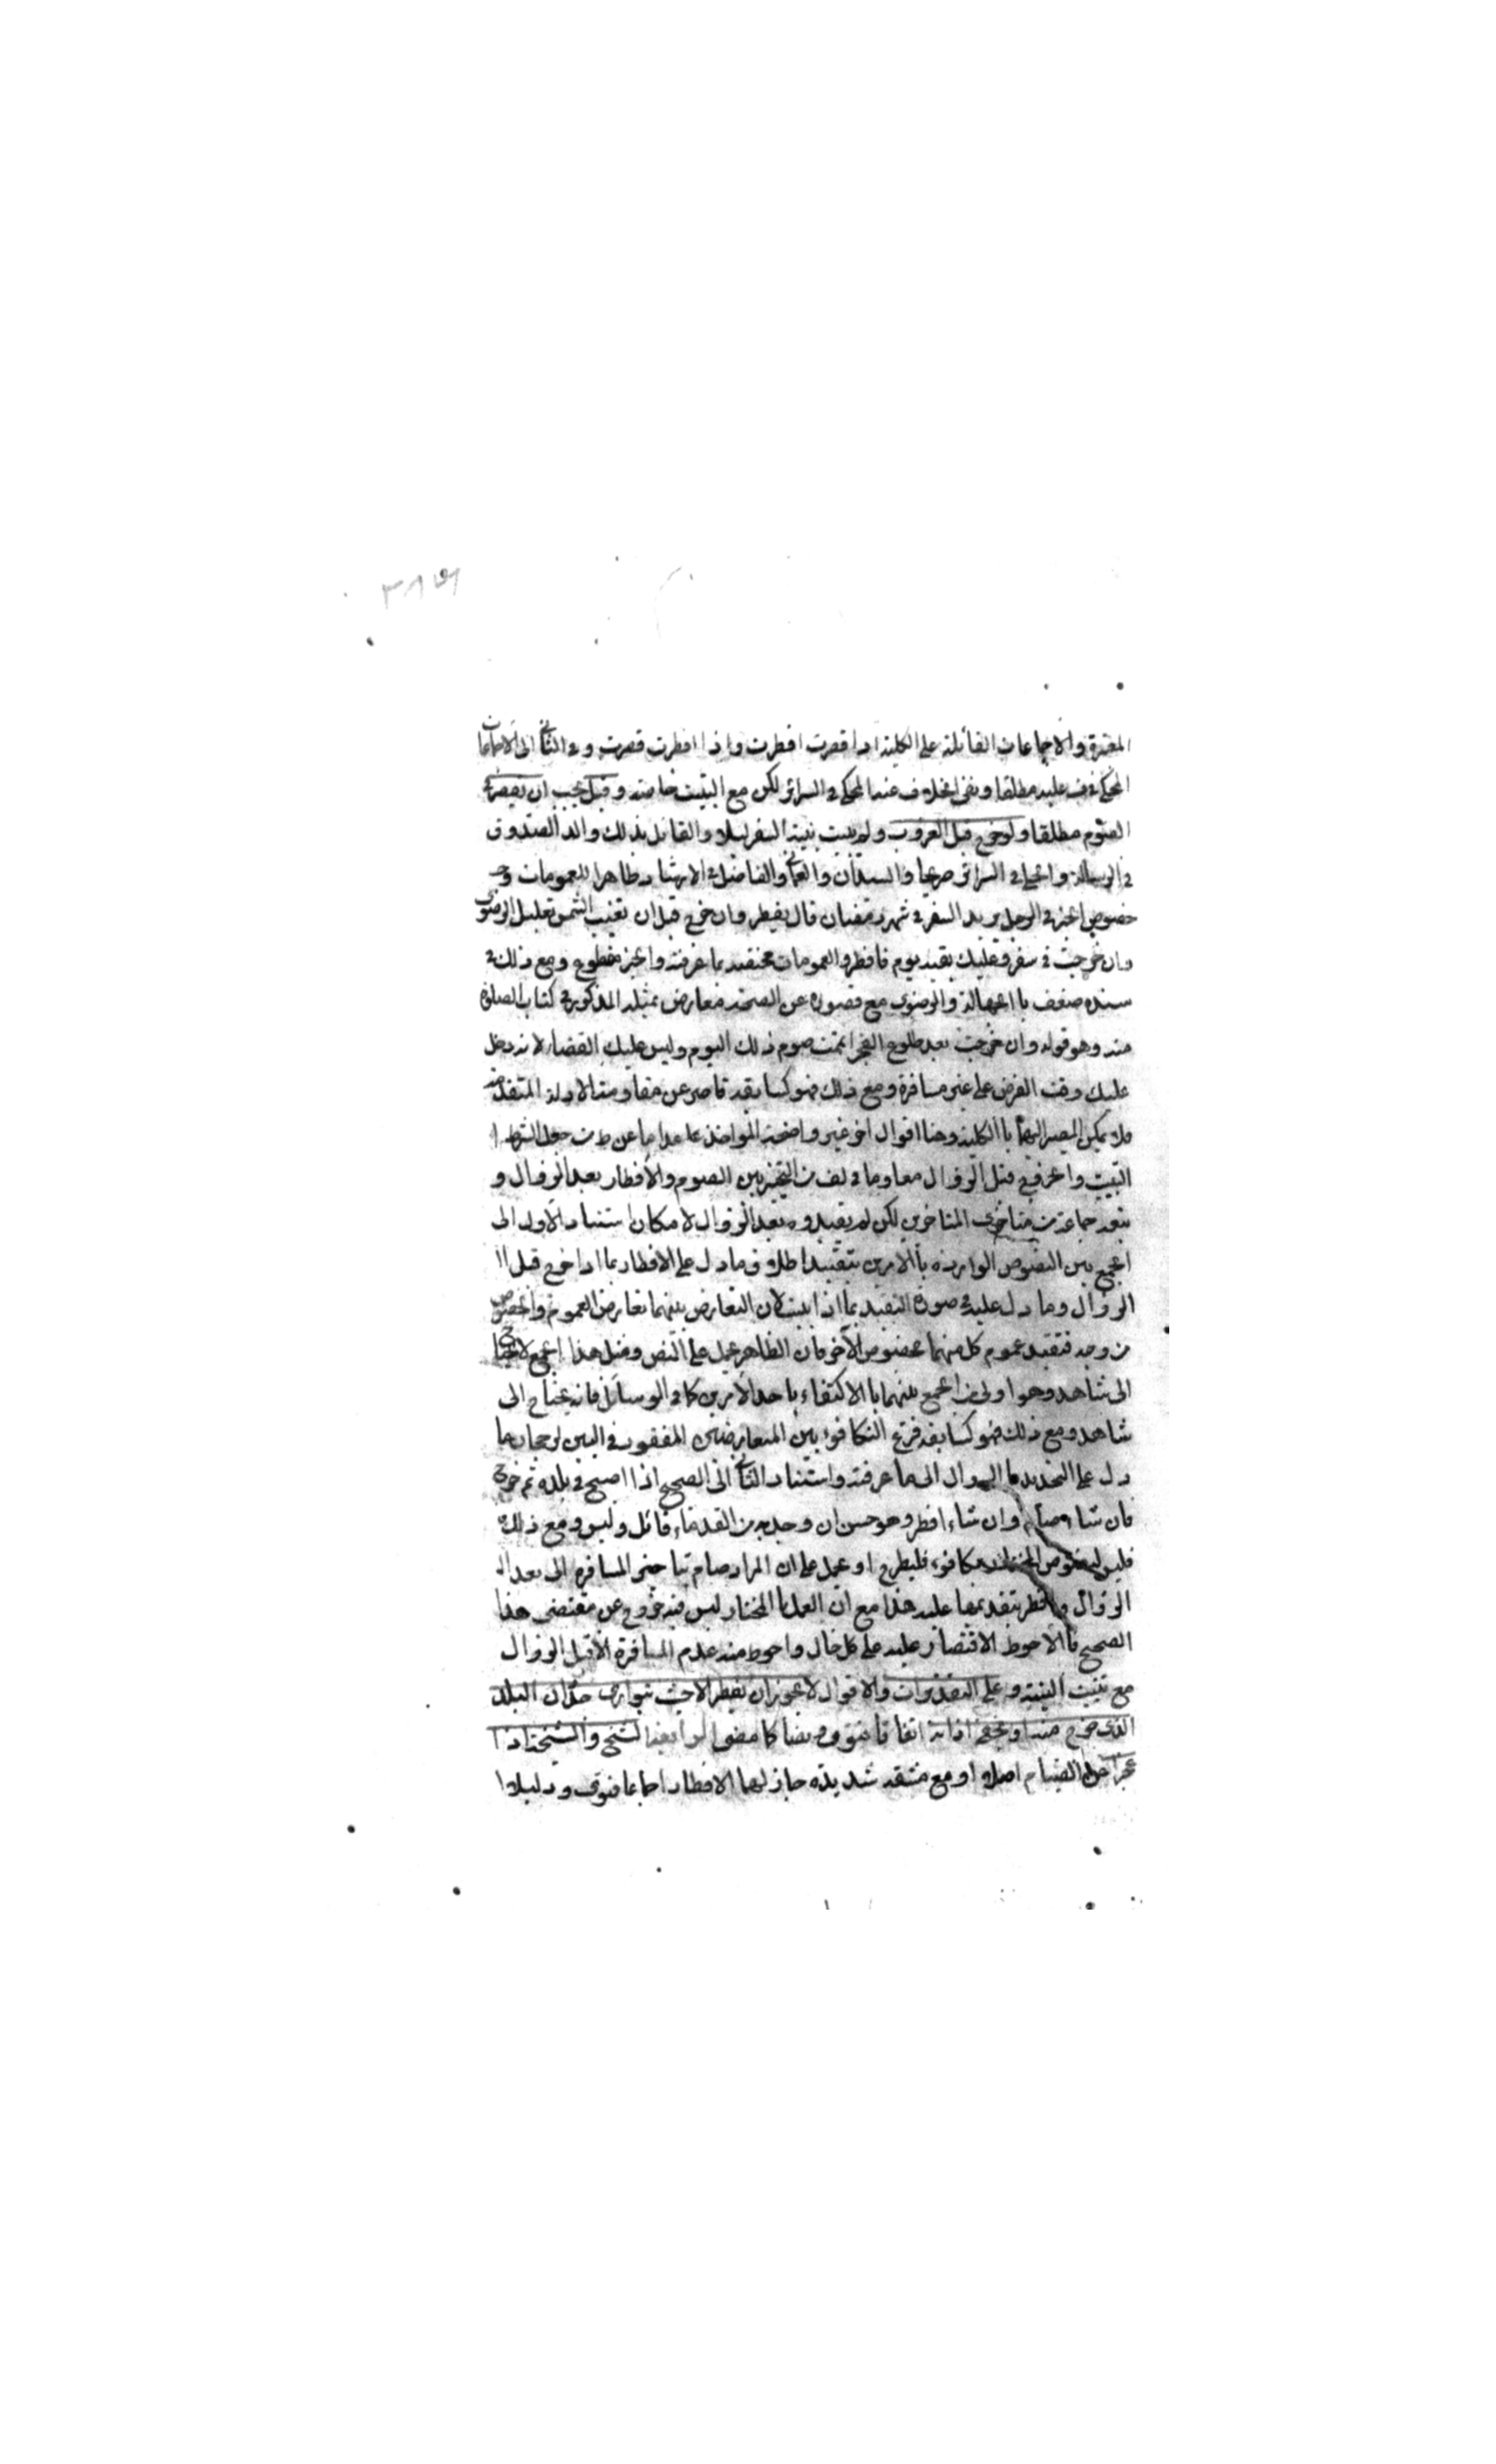 ٣٨٩
المعتبرة والاجماعات القائلة على الكلية اذا قصرت افطرت واذا افطرت قصرت وفي الثاني الى الاجماعات
المحكي في ف عليه مطلقا ونفي الخلاف عنه المحكي في السرائر لكن مع التبييت خاصة وقيل يجب ان يقصر في
الصوم مطلقا ولو خرج قبل الغروب ولم يبيت نية السفر ليلا والقائل بذلك والد الصدوق
في الرسالة والحلي في السرائر صريحا والسيدان والعماني والفاضل في الارشاد ظاهرا للعمومات و
خصوص الخبر في الرجل يريد السفر في شهر رمضان قال يفطر وان خرج قبل ان تغيب الشمس بقليل الرضوي
وان خرجت في سفر وعليك بقية يوم فافطر والعمومات مخصصة بما عرفته والخبر مقطوع ومع ذلك في
سنده ضعف با الجهالة والرضوي مع قصوره عن الصحة معارض بمثله المذكور في كتاب الصلوة
منه وهو قوله وان خرجت بعد طلوع الفجر اتممت صوم ذلك اليوم وليس عليك القضاء لانه دخل
عليك وقت الفرض على غير مسافرة ومع ذلك فهو كسابقه قاصر عن مقاومة الادلة المتقدمة
فلا يمكن المصير اليهما با الكلية وهنا اقوال اخر غير واضحة المواخذ عدا ما عن ط من جعل الشرط
التبييت والخروج قبل الزوال معا وما في لف من التخيير بين الصوم والافطار بعد الزوال و
تبعه جماعة من متاخري المتاخرين لكن لم يقيدوه بعد الزوال لامكان استناد الاول الى
الجمع بين النصوص الواردة با الامرين بتقييد اطلاق ما دل على الافطار بما اذا خرج قبل
الزوال وما دل عليه في صورة التقييد بما اذا بيت لان التعارض بينهما تعارض العموم والخصوص
من وجه فتقيد عموم كل منهما بخصوص الآخر فان الظاهر يحمل على النص ومثل هذا الجمع لا يحتاج
الى شاهد وهو اولى من الجمع بينهما با الاكتفاء باحد الامرين كما في الوسائل فانه يحتاج الى
شاهد ومع ذلك فهو كسابقه فرع التكافوء بين المتعارضين المفقود في البين لرجحان ما
دل على التحديد با الزوال الى ما عرفته واستناد الثاني الى الصحيح اذا اصبح في بلده ثم خرج
فان شاء صام وان شاء افطر وهو حسن ان وجد به من القدماء قائل وليس ومع ذلك
فليس لنصوص المختار مكافوء فليطرح او يحمل على ان المراد صام بتاخير المسافرة الى بعد
الزوال وافطر بتقديمها عليه هذا مع ان العمل با المختار ليس فيه خروج عن مقتضى هذا
الصحيح فا الاحوط الاقتصار عليه على كل حال واحوط منه عدم المسافرة الا قبل الزوال
مع تبييت النية وعلى التقديرات والاقوال لا يجوز ان يفطر الا حيث يتوارى جدران البلد
الذي خرج منه او يخفى اذانه اتفاقا فتوى ونصا كما مضى الرابعة الشيخ والشيخة اذا
عجزا عن الصيام اصلا او مع مشقة شديدة جاز لهما الافطار اجماعا فتوى ودليلا